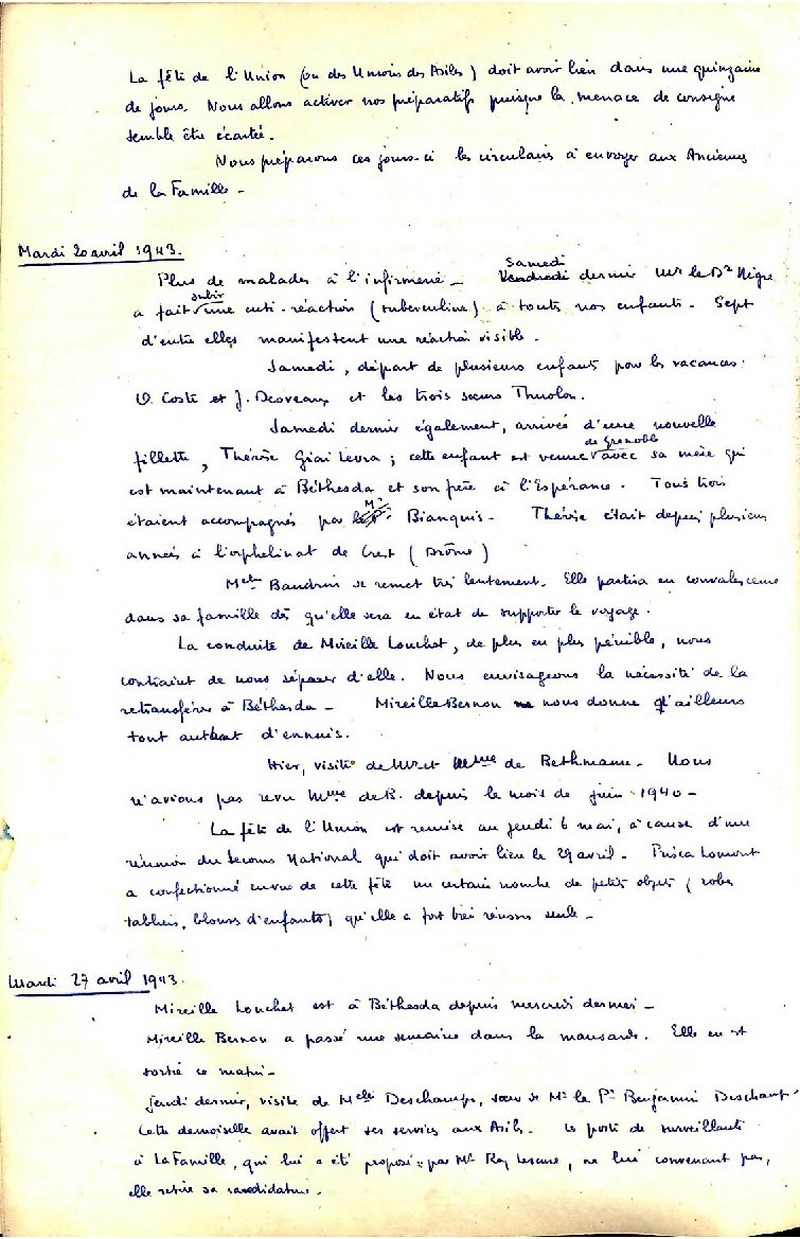 La fête de l'Union (ou des Unions des Asiles) doit avoir lieu dans une quinzaine
de jours. Nous allons activer nos préparatifs puisque la menace de consigne
semble être écartée.
Nous préparons ces jours-ci les circulaires à envoyer aux Anciennes
de la Famille -
Mardi 20 avril 1943.
Plus de malades à l'infirmerie - Samedi
Vendredi dernier Mr le Dr Nègre
a fait subir une cuti-réaction (tuberculine) à toutes nos enfants. Sept
d'entre elles manifestent une réaction visible.
Samedi, départ de plusieurs enfants pour les vacances :
O. Coste et J. Desveaux et les trois sœurs Thuolon.
Samedi dernier également, arrivée d'une nouvelle
fillette, Thérèse Giai Levra ; cette enfant est venue de Grenoble avec sa mère qui
est maintenant à Béthesda et son frère à l'Espérance. Tous trois
étaient accompagnés par Mr Bianquis - Thérèse était depuis plusieurs
années à l'orphelinat de Crest (Drôme)
Melle Baudrin se remet très lentement. Elle partira en convalescence
dans sa famille dès qu'elle sera en état de supporter le voyage.
La conduite de Mireille Louchet, de plus en plus pénible, nous
contraint de nous séparer d'elle. Nous envisageons la nécessité de la
retransférer à Béthesda - Mireille Bernon nous donne d'ailleurs
tout autant d'ennuis.
Hier, visite de Mr et Mme de Bethmann. Nous
n'avions pas revu Mme de B. depuis le mois de juin 1940 -
La fête de l'Union est remise au jeudi 6 mai, à cause d'une
réunion du Secours National qui doit avoir lieu le 29 avril - Prisca Lomont
a confectionné en vue de cette fête un certain nombre de petits objets (robes
tabliers, blouses d'enfants) qu'elle a fort bien réussis seule -
Mardi 27 avril 1943.
Mireille Louchet est à Béthesda depuis mercredi dernier -
Mireille Bernon a passé une semaine dans la mansarde. Elle en est
sortie ce matin -
Jeudi dernier, visite de Melle Deschamps, sœur de Mr le Pr Benjamin Deschamps.
Cette demoiselle avait offert ses services aux Asiles. Le poste de surveillante
à La Famille, qui lui a été proposé par Mr Rey Lescure, ne lui convenant pas,
elle retire sa candidature.